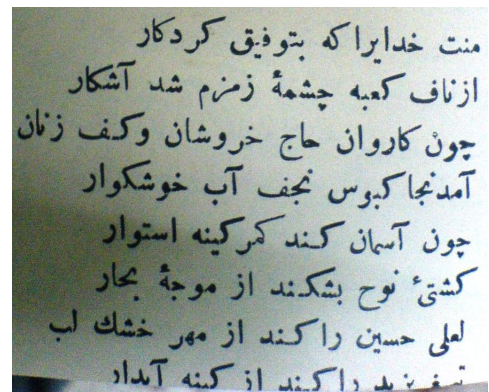 منت خدایرا که بتوفیق کردکار
ازناف کعبه چشمهٔ زمزم شد آشکار
چون کاروان حاج خروشان وکف زنان
آمدنجاکبوس نجف آب خوشکوار
چون آسمان کند کمرکینه استوار
کشتیٔ نوح بشکند از موجهٔ بحار
لعلی حسین راکند از مهر خشك لب
تیغ یزید راکند از کینه آبدار